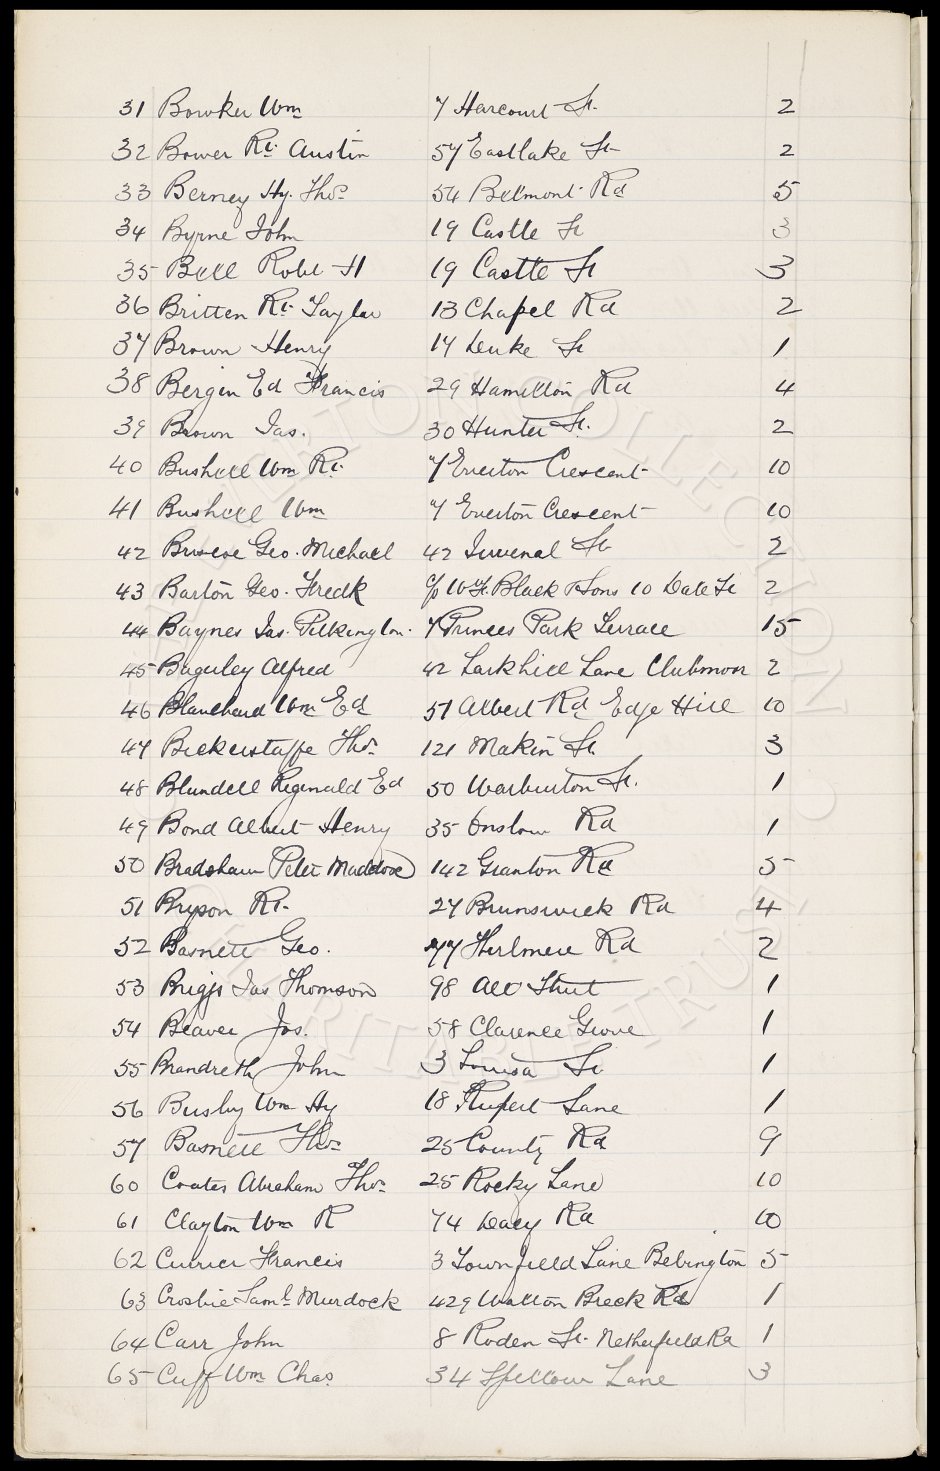 31 Bowker Wm 7 Harcourt St. 2
32 Bower Rt. Austin 57 Eastlake St 2
33 Berney Hy. Thos. 54 Belmont Rd 5
34 Byrne John 19 Castle St 3
35 Bell Robt H 19 Castle St 3
36 Britten Rt. Taylor 13 Chapel Rd 2
37 Brown Henry 17 Duke St 1
38 Bergin Ed Francis 29 Hamilton Rd 4
39 Brown Jas. 30 Hunter St. 2
40 Bushell Wm Rt. 7 Everton Crescent 10
41 Bushell Wm 7 Everton Crescent 10
42 Briscoe Geo. Michael 42 Juvenal St 2
43 Barton Geo. Fredk c/o W. F. Black & Sons 10 Dale St 2
44 Baynes Jas. Pilkington. 7 Princes Park Terrace 15
45 Baguley Alfred 42 Larkhill Lane Clubmoor 2
46 Blanchard Wm Ed 51 Albert Rd Edge Hill 10
47 Bickerstaffe Thos. 121 Makin St 3
48 Blundell Reginald Ed 50 Warburton St. 1
49 Bond Albert Henry 35 Onslow Rd 1
50 Bradshaw Peter Maddox 142 Granton Rd 5
51 Bryson Rt. 27 Brunswick Rd 4
52 Basnett Geo. 77 Thirlmere Rd 2
53 Briggs Jas Thomson 98 Alt Street 1
54 Beaver Jos. 58 Clarence Grove 1
55 Brandreth John 3 Louisa St 1
56 Busby Wm Hy 18 Rupert Lane 1
57 Basnett Thos 25 County Rd 9
60 Coates Abraham Thos. 25 Rocky Lane 10
61 Clayton Wm R 74 Dacy Rd 10
62 Currier Francis 3 Townfield Lane Bebington 5
63 Crosbie Saml. Murdock 429 Walton Breck Rd 1
64 Carr John 8 Roden St. Netherfield Rd 1
65 Cuff Wm Chas. 34 Spellow Lane 3
EVERTON COLLECTION CHARITABLE TRUST